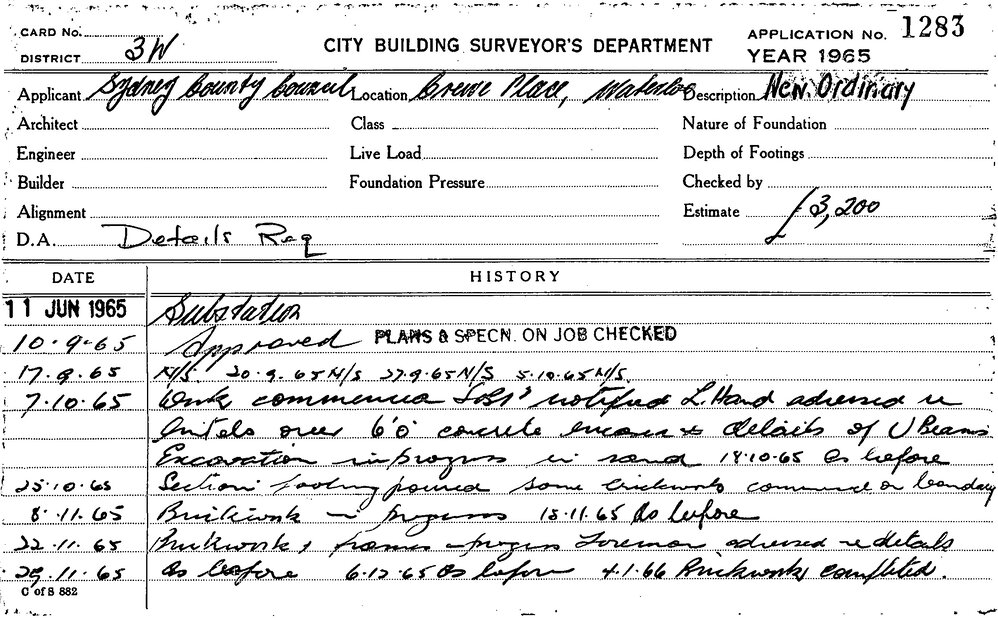 CARD No.
DISTRICT 3W
CITY BUILDING SURVEYOR'S DEPARTMENT
APPLICATION No. 1283
YEAR 1965
Applicant Sydney County Council Location Crewe Place, Waterloo Description New. Ordinary
Architect Class Nature of Foundation
Engineer Live Load Depth of Footings
Builder Foundation Pressure Checked by
Alignment Estimate £3,200
D.A. Details Req
DATE HISTORY
11 JUN 1965 Substation
10.9.65 Approved PLANS & SPECN. ON JOB CHECKED
17.9.65 N/S. 20.9.65 N/S 27.9.65 N/S 5.10.65 N/S.
7.10.65 Work commenced notified L. Hand advised re
lintels over 6'0" concrete encased & details of U Beams
Excavation in progress in sand 18.10.65 As before
25.10.65 Section footing poured some brickwork commenced on boundary
8.11.65 Brickwork in progress 15.11.65 As before
22.11.65 Brickwork & frames in progress Foreman advised re details
29.11.65 As before 6.12.65 As before 4.1.66 Brickwork completed.
C of S 882